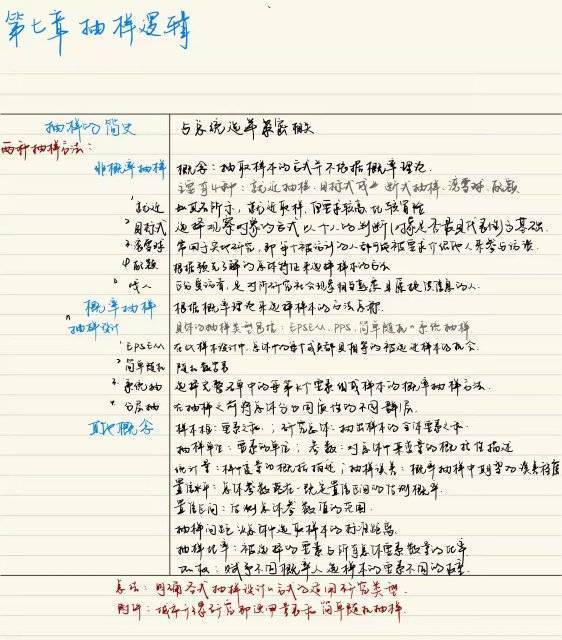 第七章 抽样逻辑
抽样的简史 与总统选举紧密相关
两种抽样方法：
非概率抽样 概念：抽取样本的方式并不依据概率理论
主要有4种：就近抽样、目标式或判断式抽样、滚雪球、配额
1 就近 如其名所示，就近取样，但要求较高，比较冒险
2 目标式 选择观察对象的方式以个人的判断(对象是否最具代表性)为基础
3 滚雪球 常用于实地研究，即每个被访问的人都可能被要求介绍他人来参与访谈
4 配额 根据预先了解的总体特征来选择样本的方法
线人 是对所研究社会现象相当熟悉且愿提供信息的人
概率抽样 根据概率理论来选择样本的方法总称
抽样设计 具体的抽样类型包括：EPSEM、PPS、简单随机、系统抽样
1 EPSEM 在此样本设计中，总体中的每个成员都具相等的被选进样本的机会
2 简单随机 随机数字表
3 系统抽 选择完整名单中的每第K个要素组成样本的概率抽样方法
4 分层抽 在抽样之前将总体分为同质性的不同群/层
其他概念 样本框：要素之和；研究总体：抽出样本的全体要素之和
抽样单位：要素的单位；参数：对总体中某变量的概括性描述
统计量：样本变量的概括描述；抽样误差：概率抽样中期望的误差程度
置信水平：总体参数落在一既定置信区间的估测概率
置信区间：估测总体参数值的范围
抽样间距：从总体中选取样本的标准距离
抽样比率：被选择的要素与所有总体要素数量的比率
加权：赋予不同概率入选样本的要素不同的权重
总结：明确各式抽样设计、方式的适用研究类型
附：